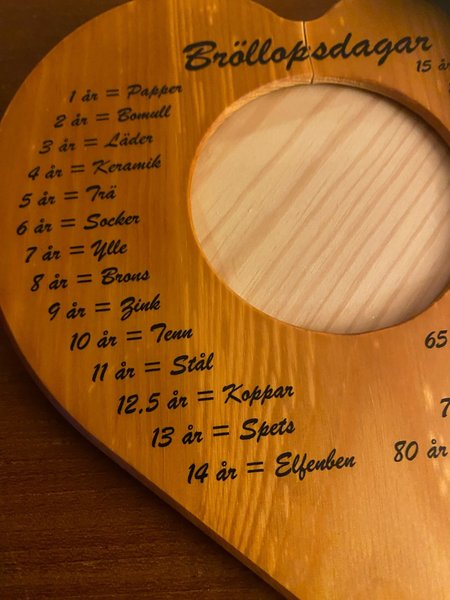 Bröllopsdagar
1 år = Papper
2 år = Bomull
3 år = Läder
4 år = Keramik
5 år = Trä
6 år = Socker
7 år = Ylle
8 år = Brons
9 år = Zink
10 år = Tenn
11 år = Stål
12.5 år = Koppar
13 år = Spets
14 år = Elfenben
15 år
65
7
80 år